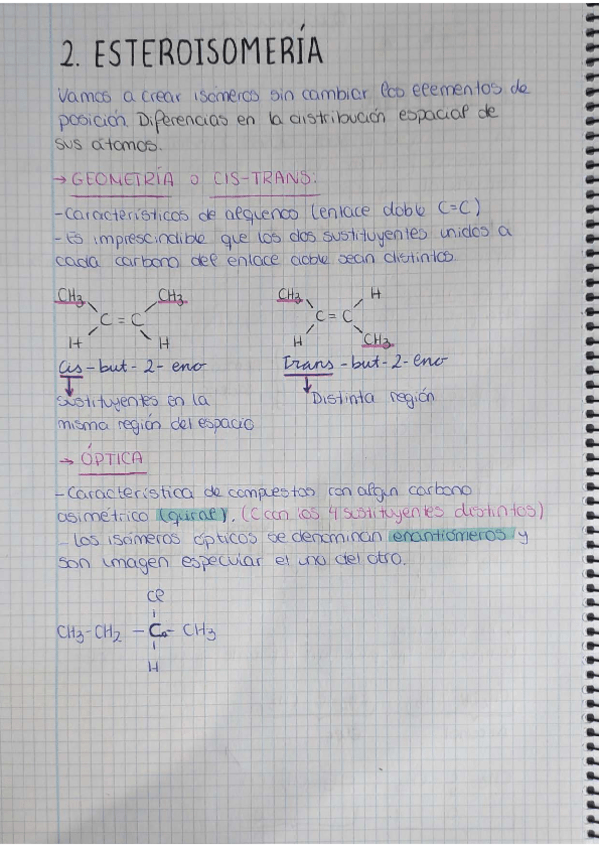 2. ESTEROISOMERÍA
Vamos a crear isómeros sin cambiar los elementos de
posición. Diferencias en la distribución espacial de
sus átomos.
→ GEOMETRÍA o CIS-TRANS.
-Característicos de alquenos (enlace doble C=C)
-Es imprescindible que los dos sustituyentes unidos a
cada carbono del enlace doble sean distintos.
CH3 CH3 CH3 H
C = C C = C
H H H CH3
Cis-but-2-eno Trans-but-2-eno
↓ ↓
Sustituyentes en la Distinta región
misma región del espacio
→ ÓPTICA
-Característica de compuestos con algún carbono
asimétrico (quiral). (C con los 4 sustituyentes distintos)
- Los isómeros ópticos se denominan enantiómeros y
son imagen especular el uno del otro.
Cl
CH3-CH2 - C - CH3
H